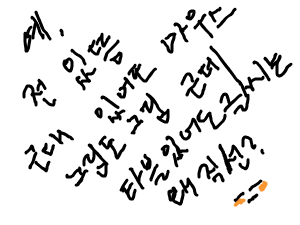 예.
전 있죠
마우스
근데 있어준
그림도 그림 근데
타블있어도글씨는
왜직선?